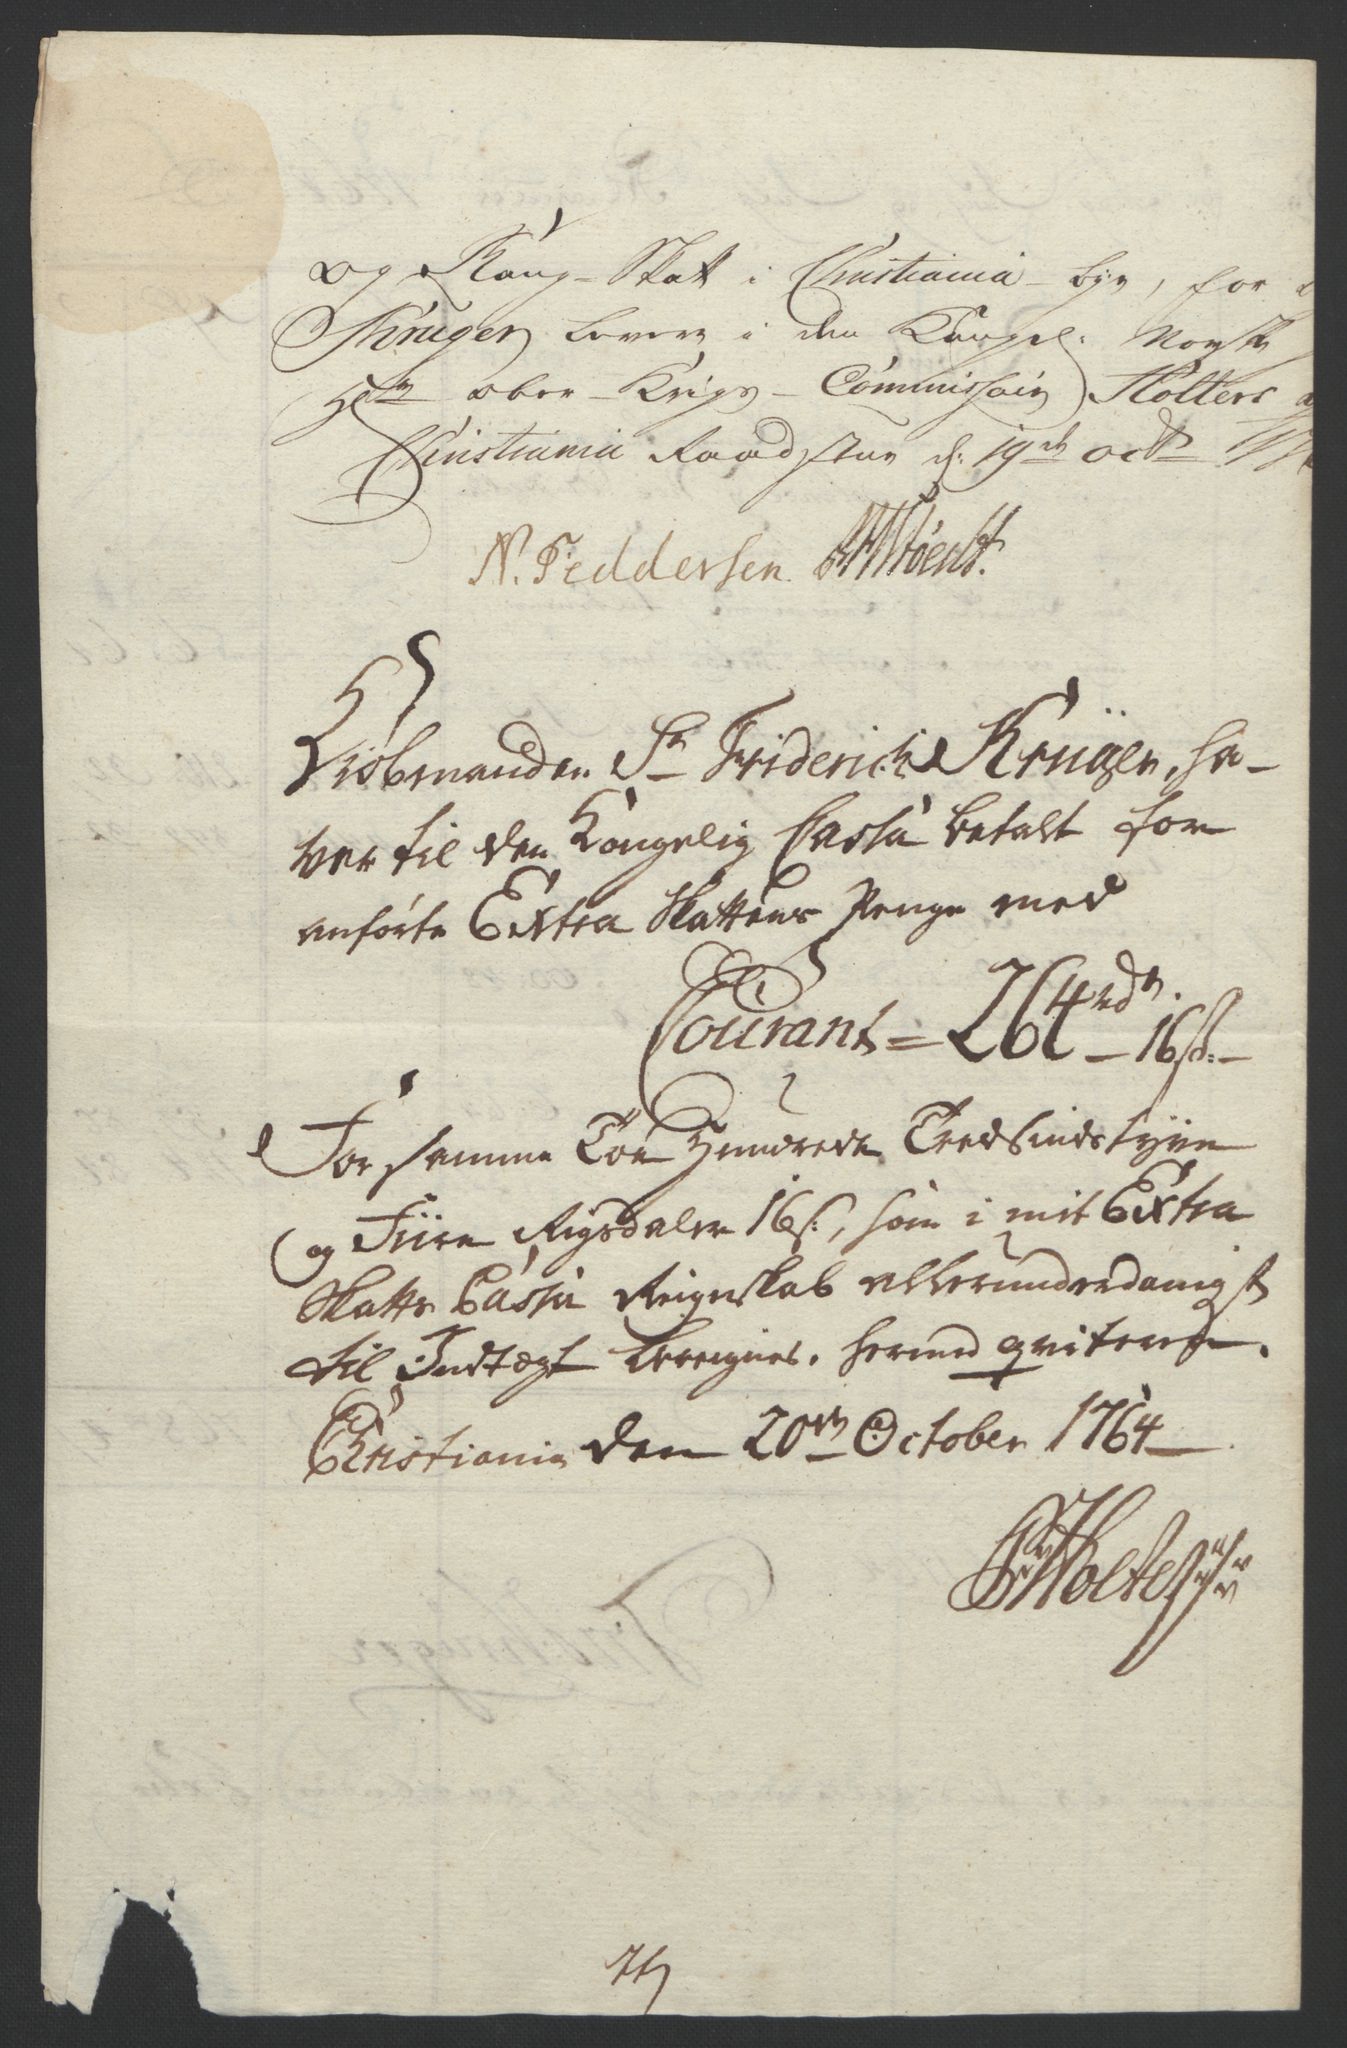 og Rang-Skat i Christiania bye, for
Kruger levere i den Kongel: Norske
Hr ober-Krigs-Commissair Holters
Christiania Raadstue d: 19de octbr
N. Feddersen.
Kiøbmanden Sr Friderich Krüger, ha-
ver til den Kongelig Cassa betalt for
anførte Extra Skattens Penge med
Courant = 264 rdr. - 16 s: -
For samme Toe Hundrede Tredsindstyve
og Fiire Rigsdaler 16 s:, som i mit Extra
Skatte Cassa Reigenskab allerunderdanigst
til Indtægt bereignes, hermed qviteres.
Christiania den 20de October 1764
Holter